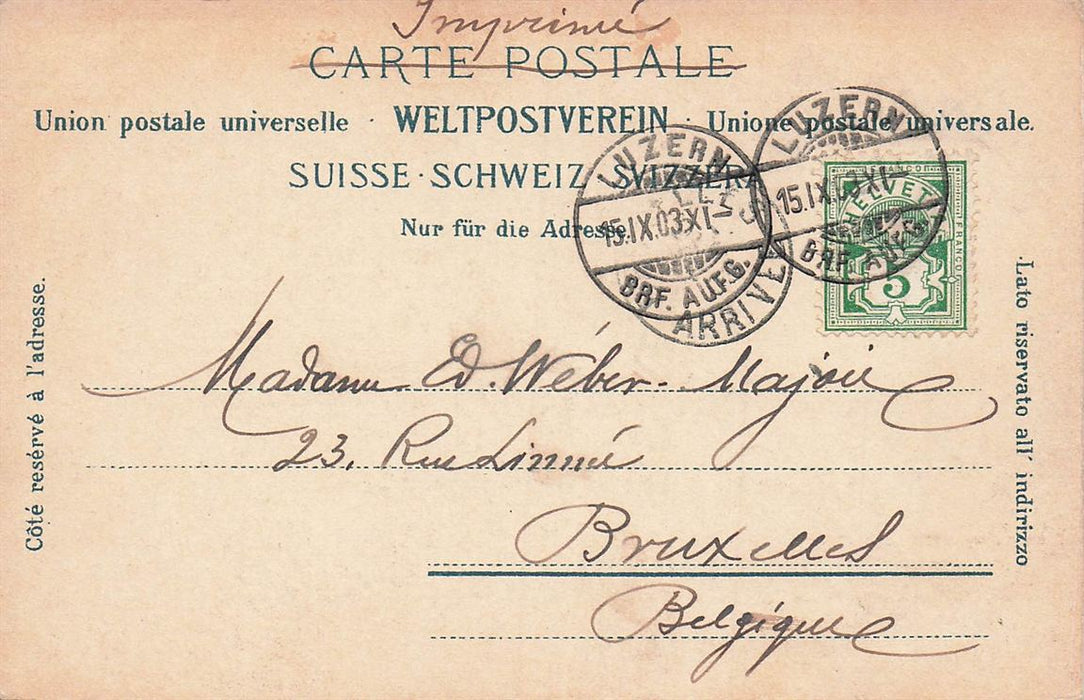 Imprimé
CARTE POSTALE
Union postale universelle · WELTPOSTVEREIN · Unione postale universale.
SUISSE · SCHWEIZ · SVIZZERA
Nur für die Adresse.
LUZERN
15.IX.03 XI–
BRF. AUFG.
LUZERN
15.IX.03 XI–
BRF. AUFG.
ARRIVÉE
FRANCO
HELVETIA
5
Côté resérvé à l'adresse.
Lato riservato all' indirizzo
Madame Ed. Wéber-Majoie
23, Rue Linnée
Bruxelles
Belgique